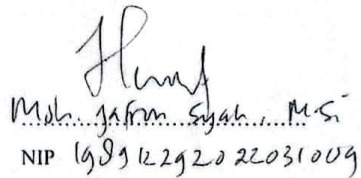 Moh. Jafron Syah, M.Si
NIP 198912292022031009